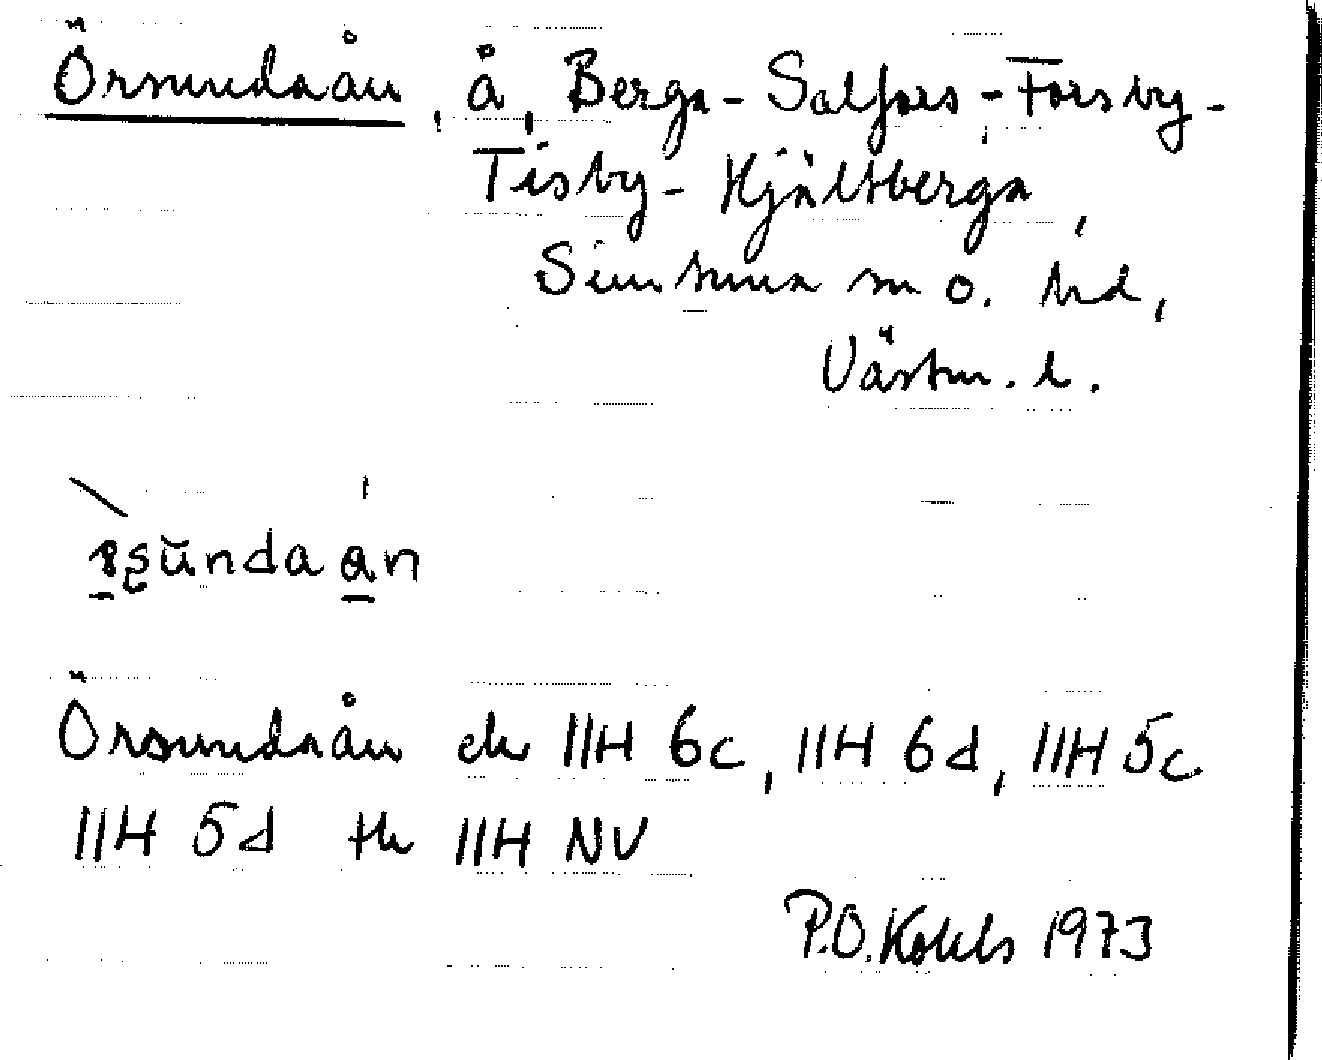 Örsundaån, å, Berga - Salfors - Forsby -
Tisby - Hjältberga,
Simtuna sn o. hd,
Västm. l.
sündaan
Örsundaån ek 11H 6c, 11H 6d, 11H 5c
11H 5d tk 11H NV
P.O. 1973